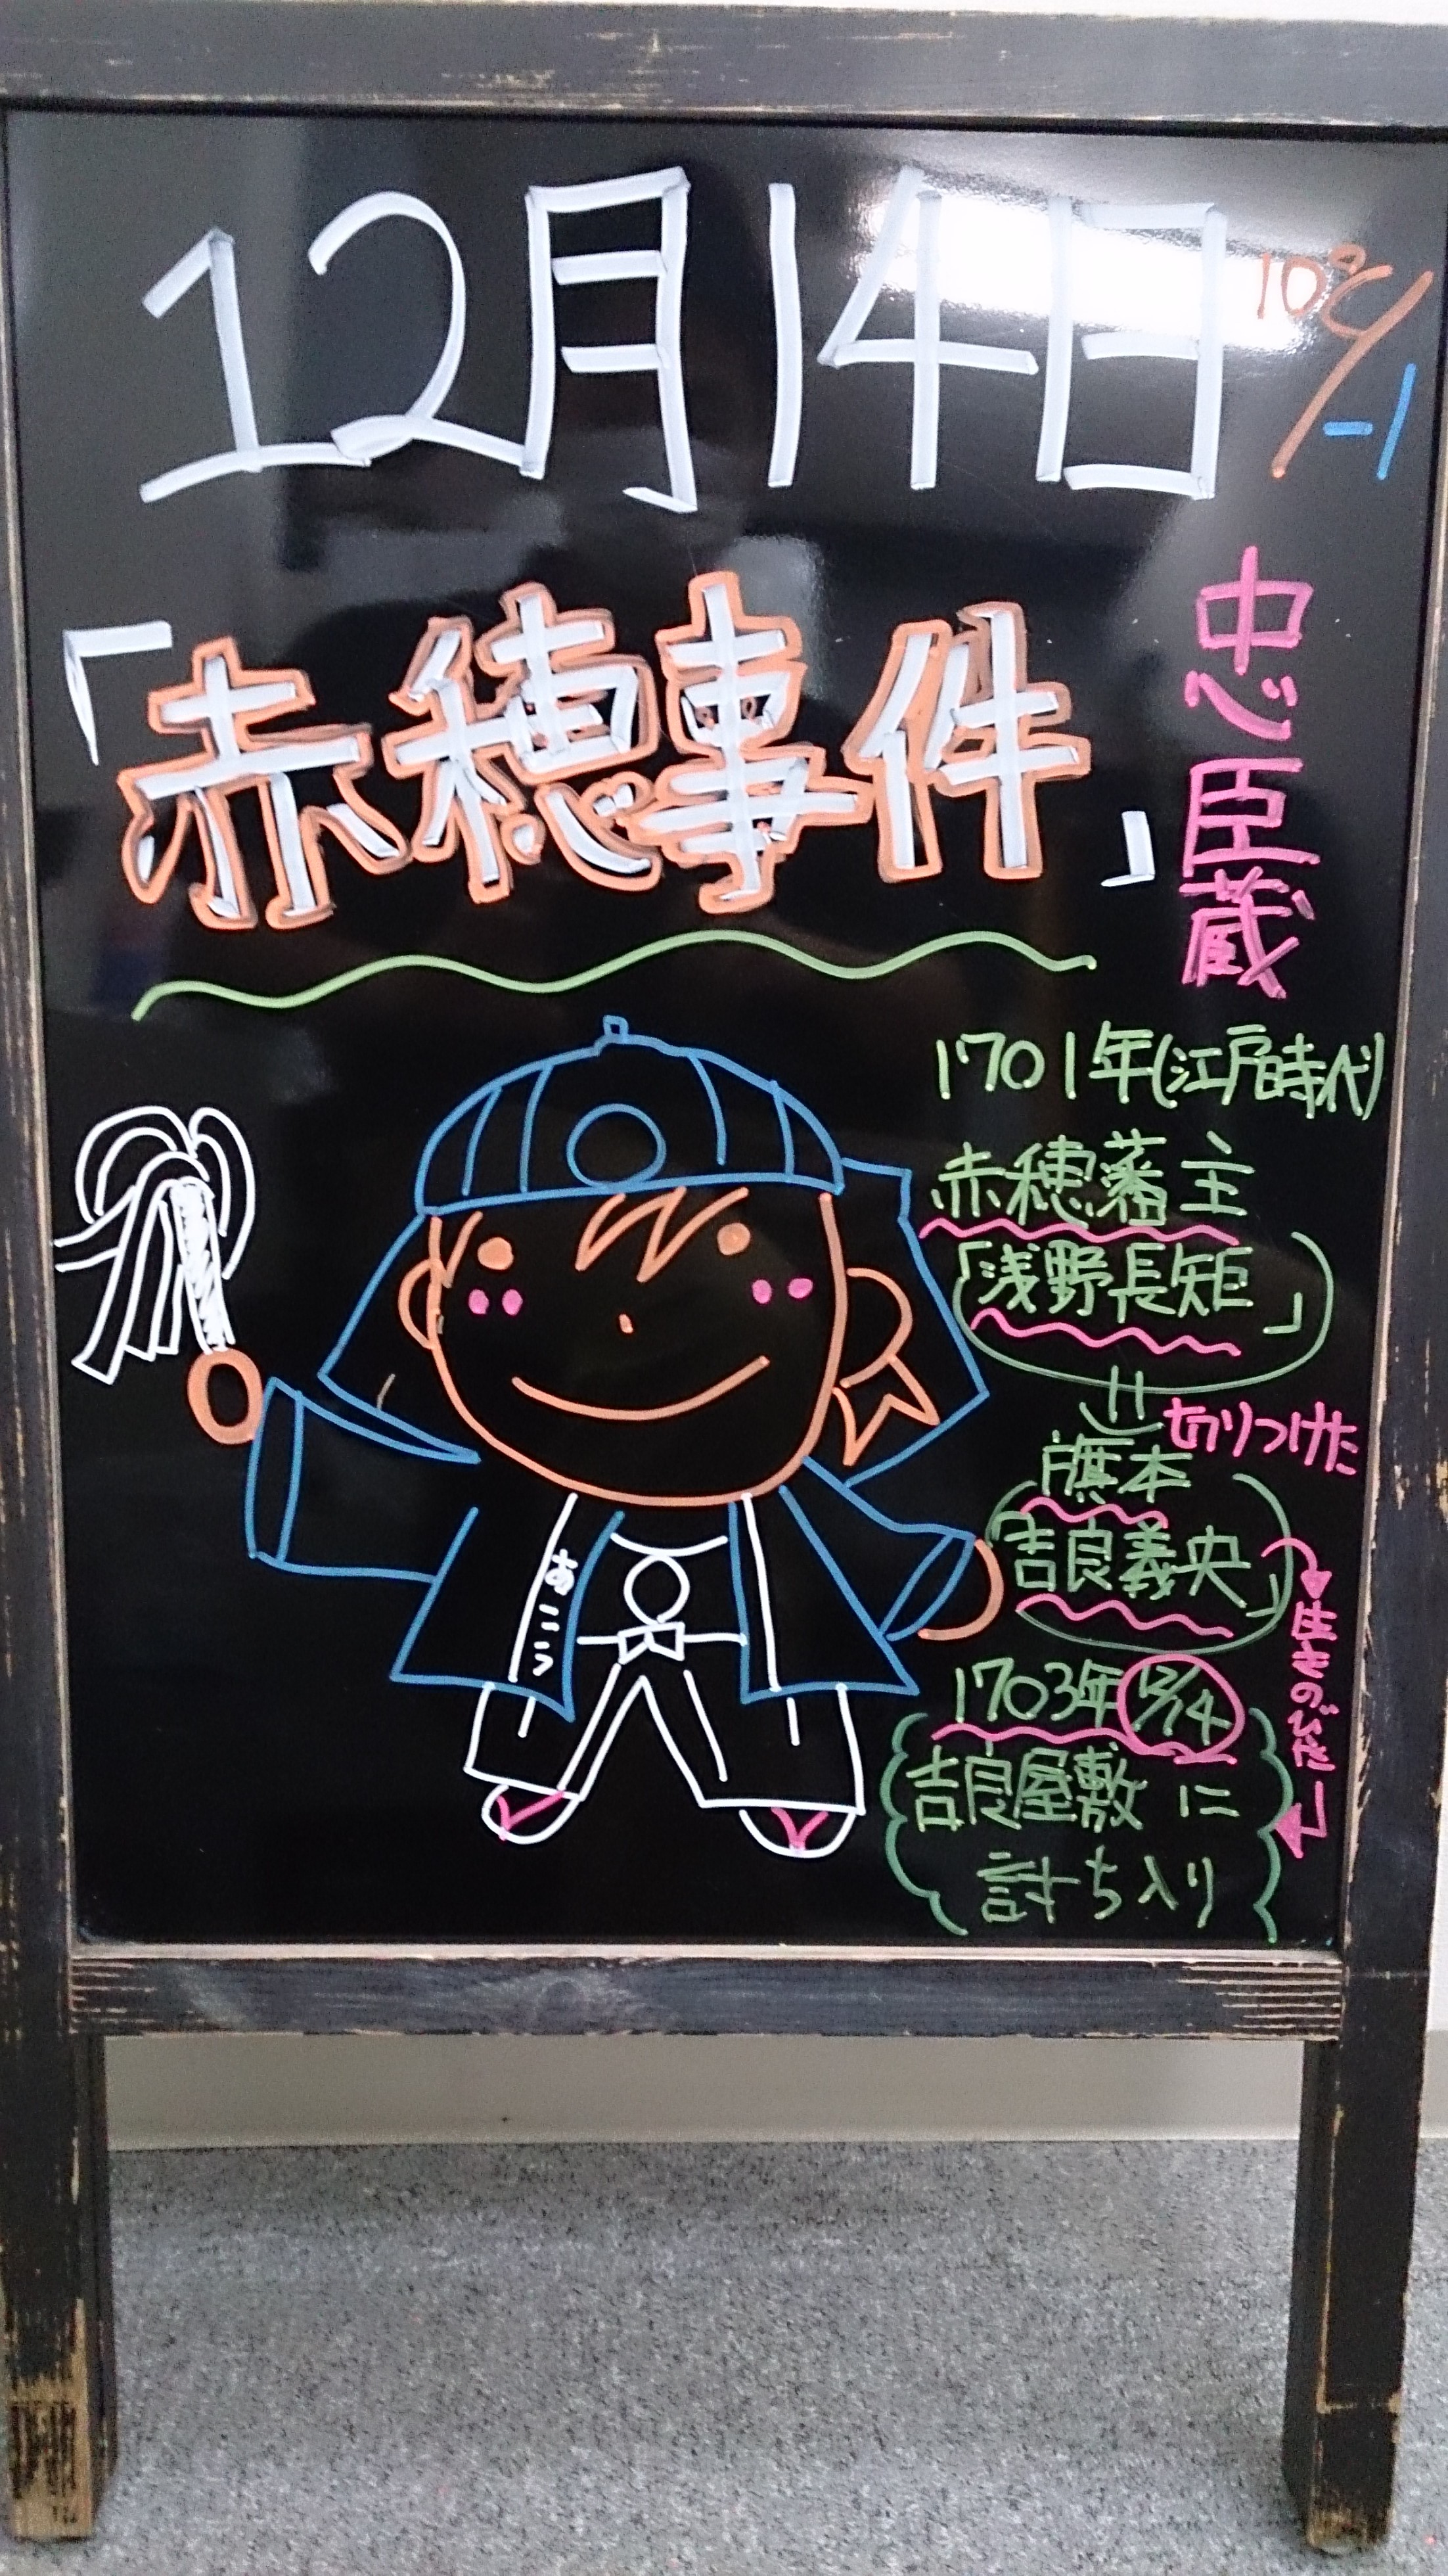 12月14日
10℃/-1
「赤穂事件」
忠臣蔵
1701年(江戸時代)
赤穂藩主
「浅野長矩」
切りつけた
旗本
吉良義央」
生きのびた
1703年12/14
吉良屋敷に
討ち入り
あこう